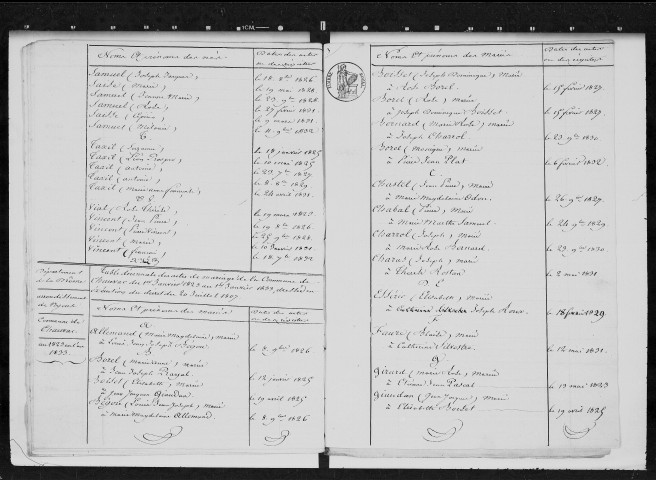 Noms et prénoms des nés
Dates des actes ou des registres
Samuel (Joseph Jacques) le 18 8bre 1826
Sarde (Marie) le 19 mai 1828
Samuel (Marie) le 23 9bre 1828
Samuel (Rose) le 27 févr 1831
le 9 mars 1831
Samuel (Mélanie) le 4 9bre 1832
T
Taxil (Suzanne) le 18 janvier 1825
Taxil (Jean Joseph) le 10 mai 1825
Taxil (Antoine) le 23 7bre 1827
Taxil (Antoine) le 8 8bre 1829
Taxil le 24 avril 1831
V
Vial (Rose Thérèse) le 19 mars 1823
Vincent (Jean Pierre) le 19 8bre 1826
Vincent (Pierre) le 25 9bre 1828
Vincent (Marie) le 10 janvier 1831
Vincent (François) le 18 7bre 1832
Département de la Drôme
arrondissement
Commune de
an 1823 à l'an 1833.
Table décennale des actes de mariage de la Commune de
du 1er Janvier 1823 au 1er Janvier 1833, dressée en
exécution du décret du 20 Juillet 1807
Noms et prénoms des mariés
Dates des actes ou des registres
A
Allemand (Marie Magdelaine) mariée
à Louis Jean Joseph Bégou le 8 9bre 1826
B
Borel (Marie Anne) mariée
à Jean Joseph le 12 janvier 1825
Boisset (Elisabeth) mariée
à Jean Jacques Girardan le 19 avril 1825
Bégou (Louis Jean Joseph) marié
à Marie Magdelaine Allemand. le 8 9bre 1826
Noms et prénoms des Mariés
Dates des actes ou des registres
Boisset (Joseph Dominique) Marié
à Rose Borel le 15 février 1827.
Borel (Rose) mariée
à Joseph Dominique Boisset le 15 février 1827.
Bernard (Marie Rose) mariée
à Joseph Charrol le 23 9bre 1830.
Borel (Monique) mariée
à Pierre Jean Plat le 6 février 1832.
C
Chastel (Jean Pierre) marié
à Marie Magdelaine Odon le 26 9bre 1827.
Chabal (Pierre) marié
à Marie Marthe Samuel le 24 9bre 1829
Charrol (Joseph) marié
à Marie Rose Bernard. le 23 9bre 1830.
Charas (Joseph) marié
à Rostan le 2 mai 1831
E
(Elisabeth) mariée
à Joseph Roux. le 18 févr 1829
F
Favre (Blaise) marié
à Catherine Silvestre le 12 mai 1831.
G
Girard (Marie Rose) mariée
à Etienne Jean Pascal le 13 mai 1823
Girardan (Jean Jacques) marié
à Elisabeth Boisset le 19 avril 1825.